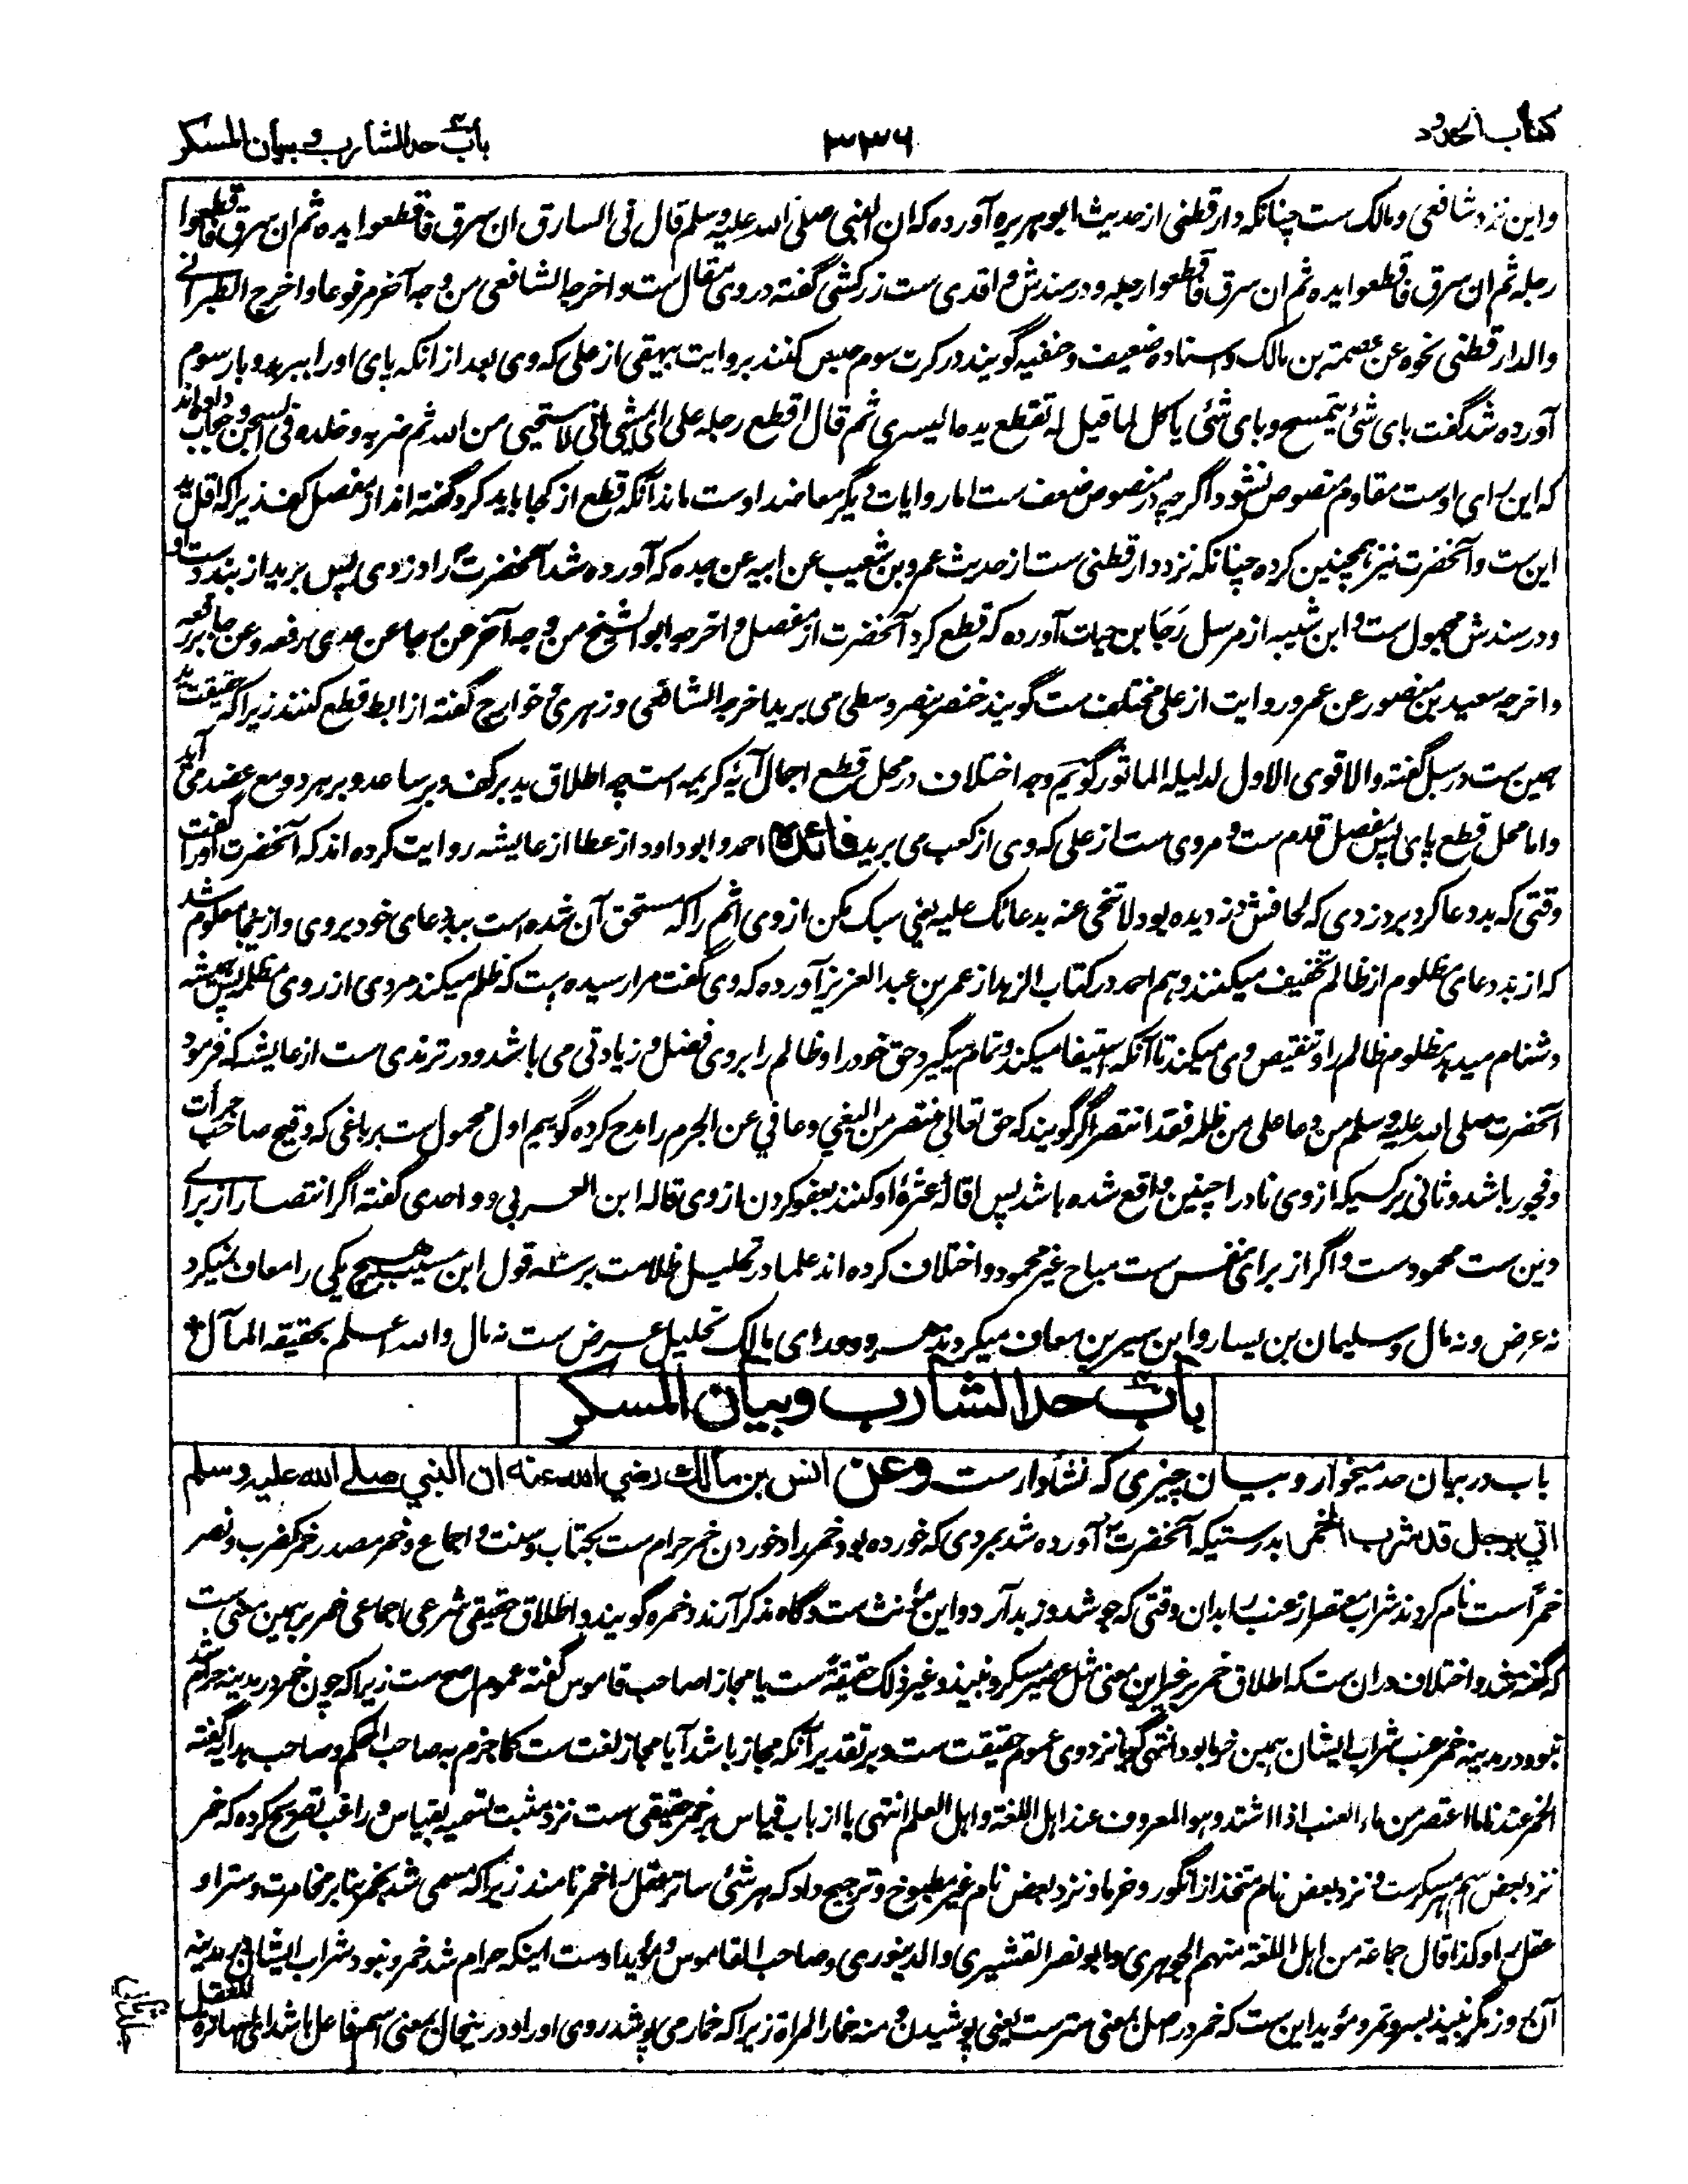 کتاب الحدود
۳۳۶
باب حد الشارب و بیان المسکر
واین نزد شافعی ومالک ست چنانکه دارقطنی از حدیث ابوهریره آورده که ان النبی صلی الله علیه وسلم قال فی السارق ان سرق فاقطعوا یده ثم ان سرق فاقطعوا
رجله ثم ان سرق فاقطعوا یده ثم ان سرق فاقطعوا رجله ودر سندش واقدی ست زرکشی گفته در وی مقال ست واخرجه الشافعی من وجه آخر مرفوعا واخرج الطبرانی
والدارقطنی نحوه عن عصمة بن مالک واسناده ضعیف وحنفیه گویند در کرت سوم حبس کنند بروایت بیهقی از علی که وی بعد از انکه پای او را ببرید وبار سوم
آورده شد گفت بای شئ یتمسح وبای شئ یاکل لما قیل له تقطع یده الیسری ثم قال اقطع رجله علی ای شئ یمشی انی لاستحیی من الله ثم ضربه وخلده فی السجن وجواب داده اند
که این رای اوست مقاوم منصوص نشود اگرچه در منصوص ضعف ست اما روایات دیگر معاضد اوست ماند آنکه قطع از کجا باید کرد گفته اند از مفصل کف زیراکه اقل ید
این ست وآنحضرت نیز همچنین کرده چنانکه نزد دارقطنی ست از حدیث عمرو بن شعیب عن ابیه عن جده که آورده شد آنحضرت را دزدی پس برید از بند دست او
ودر سندش مجهول ست وابن شیبه از مرسل رَجَا بن حیات آورده که قطع کرد آنحضرت از مفصل واخرجه ابو الشیخ من وجه آخر عن رجا عن عدی رفعه وعن جابر رفعه
واخرجه سعید بن منصور عن عمر وروایت از علی مختلف ست گویند خنصر وبنصر ووسطی می برید اخرجه الشافعی وزهری وخوارج گفته از ابط قطع کنند زیراکه حقیقت ید
همین ست در سبل گفته والاقوی الاول لدلیله الماثور گویم وجه اختلاف در محل قطع اجمال آیهٔ کریمه است چه اطلاق ید بر کف وبر ساعد وبر هر دو مع عضد می آید
واما محل قطع پای پس مفصل قدم ست ومروی ست از علی که وی از کعب می برید فائده احمد وابو داود از عطا از عایشه روایت کرده اند که آنحضرت او را گفت
وقتی که بد دعا کرد بر دزدی که لحافش دزدیده بود لا تخی عنه بدعائک علیه یعنی سبک مکن از وی اثم را که مستحق آن شده است ببد دعای خود بر وی واز ینجا معلوم شد
که از بد دعای مظلوم از ظالم تخفیف میکنند وهم احمد در کتاب الزهد از عمر بن عبد العزیز آورده که وی گفت مرا رسیده است که ظلم میکند مردی از روی مظلمه پس همیشه
دشنام میدهد مظلوم ظالم را وتنقیص وی میکند تا آنکه استیفا میکند وتمام میگیرد حق خود را وظالم را بر وی فضل وزیادتی می باشد ودر ترمذی ست از عایشه که فرمود
آنحضرت صلی الله علیه وسلم من دعا علی من ظلمه فقد انتصر اگر گویند که حق تعالی منتصر من البغی وعافی عن الجرم را مدح کرده گوییم اول محمول ست بر باغی که وقیح صاحب جرأت
وفجور باشد وثانی بر کسیکه از وی نادرا چنین واقع شده باشد پس اقالهٔ عثرهٔ او کنند بعفو کردن از وی قاله ابن العربی وواحدی گفته اگر انتصار از برای
دین ست محمود ست واگر از برای نفس ست مباح غیر محمود واختلاف کرده اند علما در تحلیل ظلامت بر سه قول ابن مسیب هیچ یکی را معاف نمیکرد
نه عرض ونه مال وسلیمان بن یسار وابن سیرین معاف میکردند هر دو ورای مالک تحلیل عرض ست نه مال والله اعلم بحقیقة المآل
باب حد الشارب وبیان المسکر
باب در بیان حد میخوار وبیان چیزی که نشاآور ست وعن انس بن مالك رضي الله عنه ان النبي صلی الله علیه وسلم
اتي برجل قد شرب الخمر بدرستیکه آنحضرت آورده شد بمردی که خورده بود خمر را وخوردن خمر حرام ست بکتاب وسنت واجماع وخمر مصدر خمر کضرب ونصر
خمرًا ست نام کردند شراب معتصر از عنب را بدان وقتی که جوشد وزبد آرد واین مؤنث ست وگاه مذکر آرند وخمره گویند واطلاق حقیقی شرعی اجماعی خمر بر همین معنی ست
که گفته شد واختلاف دران ست که اطلاق خمر بر غیر این معنی مثل عصیر مسکر ونبیذ وغیر ذلک حقیقةً ست یا مجازا صاحب قاموس گفته عموم اصح ست زیراکه چون خمر در مدینه حرام شد
نبود در مدینه خمر عنب شراب ایشان همین خرما بود انتهی گویا نزد وی عموم حقیقت ست وبر تقدیر آنکه مجاز باشد آیا مجاز لغت ست کما جزم به صاحب المحکم وصاحب هدایه گفته
الخمر عندنا ما اعتصر من ماء العنب اذا اشتد وهو المعروف عند اهل اللغة واهل العلم انتهی یا از باب قیاس بر خمر حقیقی ست نزد مثبت تسمیه بقیاس وراغب تصریح کرده که خمر
نزد بعض اسم هر مسکر ست ونزد بعض نام متخذ از انگور وخرما ونزد بعض نام غیر مطبوخ وترجیح داد که هر شئ ساتر عقل را خمر نامند زیراکه مسمی شد بخمر بنا بر مخامرت وستر او
عقل را وکذا قال جماعة من اهل اللغة منهم الجوهری وابو نصر القشیری والدینوری وصاحب القاموس ومؤید اوست اینکه حرام شد خمر ونبود شراب ایشان در مدینه
آن روز مگر نبیذ بسر وتمر ومؤید این ست که خمر در اصل بمعنی ستر ست یعنی پوشیدن ومنه خمار المراة زیراکه خمار می پوشد روی او را ودر ینحال بمعنی اسم فاعل باشد ای الساترة للعقل